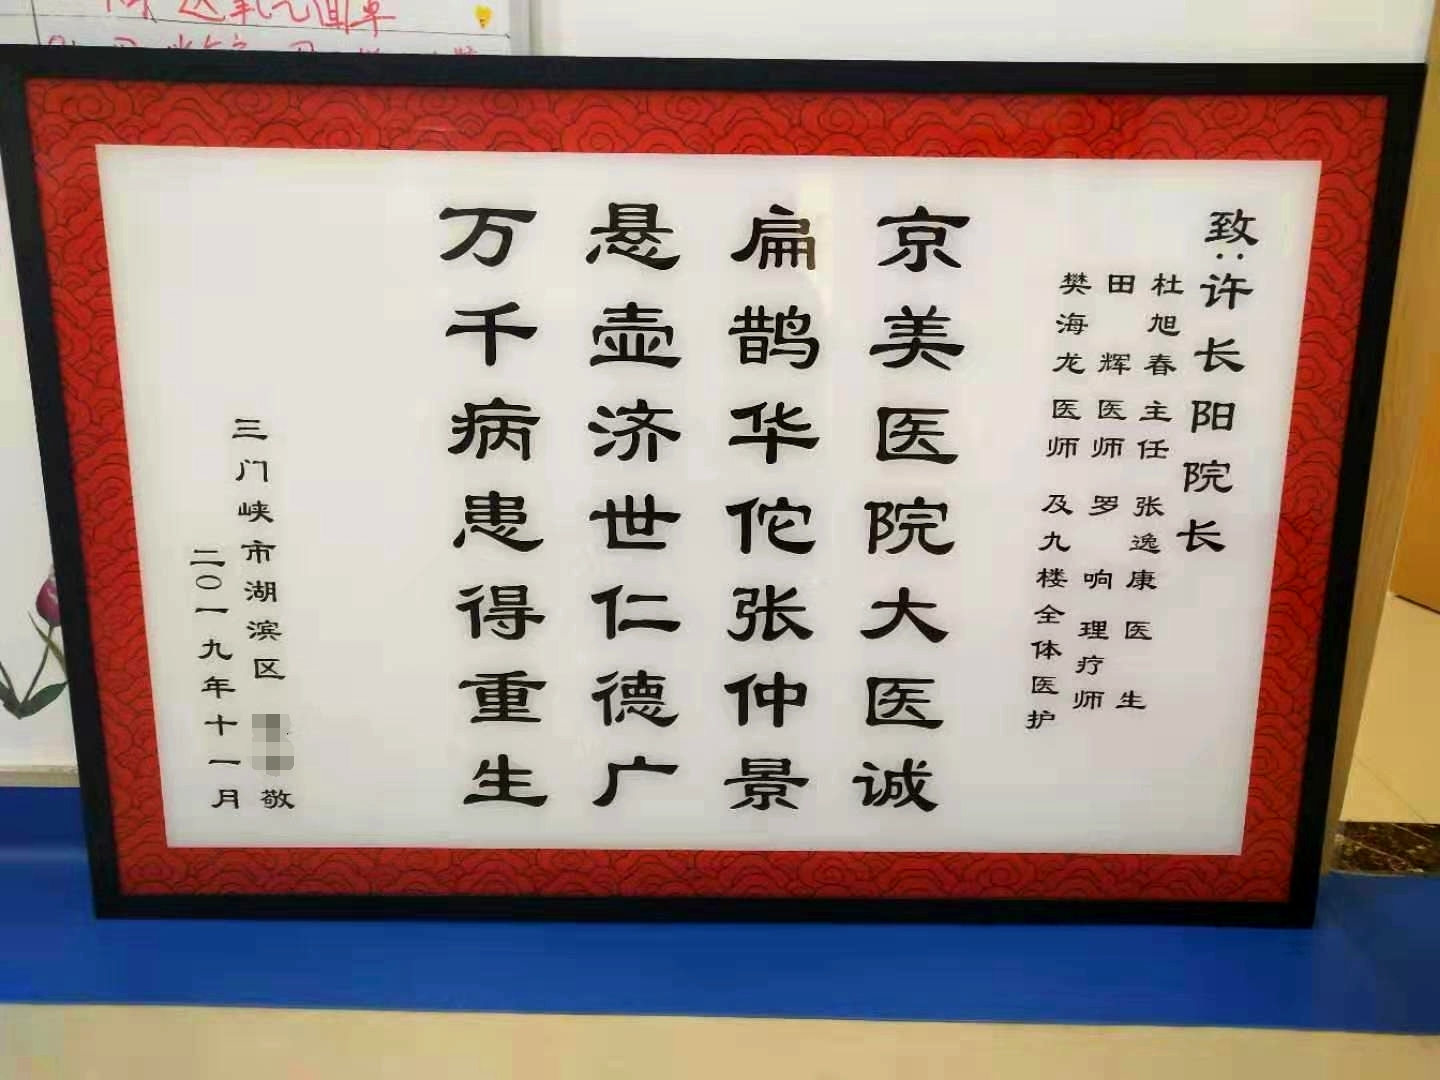 致：许长阳院长
杜旭春主任 张逸康医生
田辉医师 罗响理疗师
樊海龙医师 及九楼全体医护
京美医院大医诚
扁鹊华佗张仲景
悬壶济世仁德广
万千病患得重生
三门峡市湖滨区 敬
二〇一九年十一月